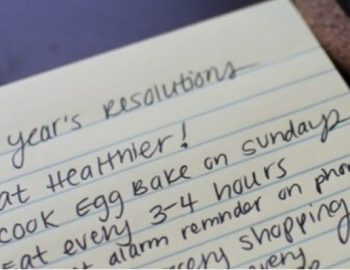 year's resolutions
at Healthier!
cook Egg Bake on Sundays
Eat every 3-4 hours
alarm reminder on pho
shopping